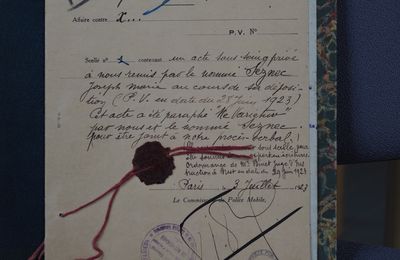 Affaire contre X...
P.V. N°
Scellé N° 1 contenant un acte sous seing privé
à nous remis par le nommé Seznec
Joseph Marie au cours de sa déposi-
tion (P.V. en date du 28 Juin 1923)
Cet acte a été paraphé "Ne Varietur"
par nous et le nommé Seznec.
Pour être joint à notre procès-verbal.
Ordonnance de Mr
truction à Brest en date du 29 Juin 1923
Paris 3 Juillet 1923
Le Commissaire de Police Mobile,